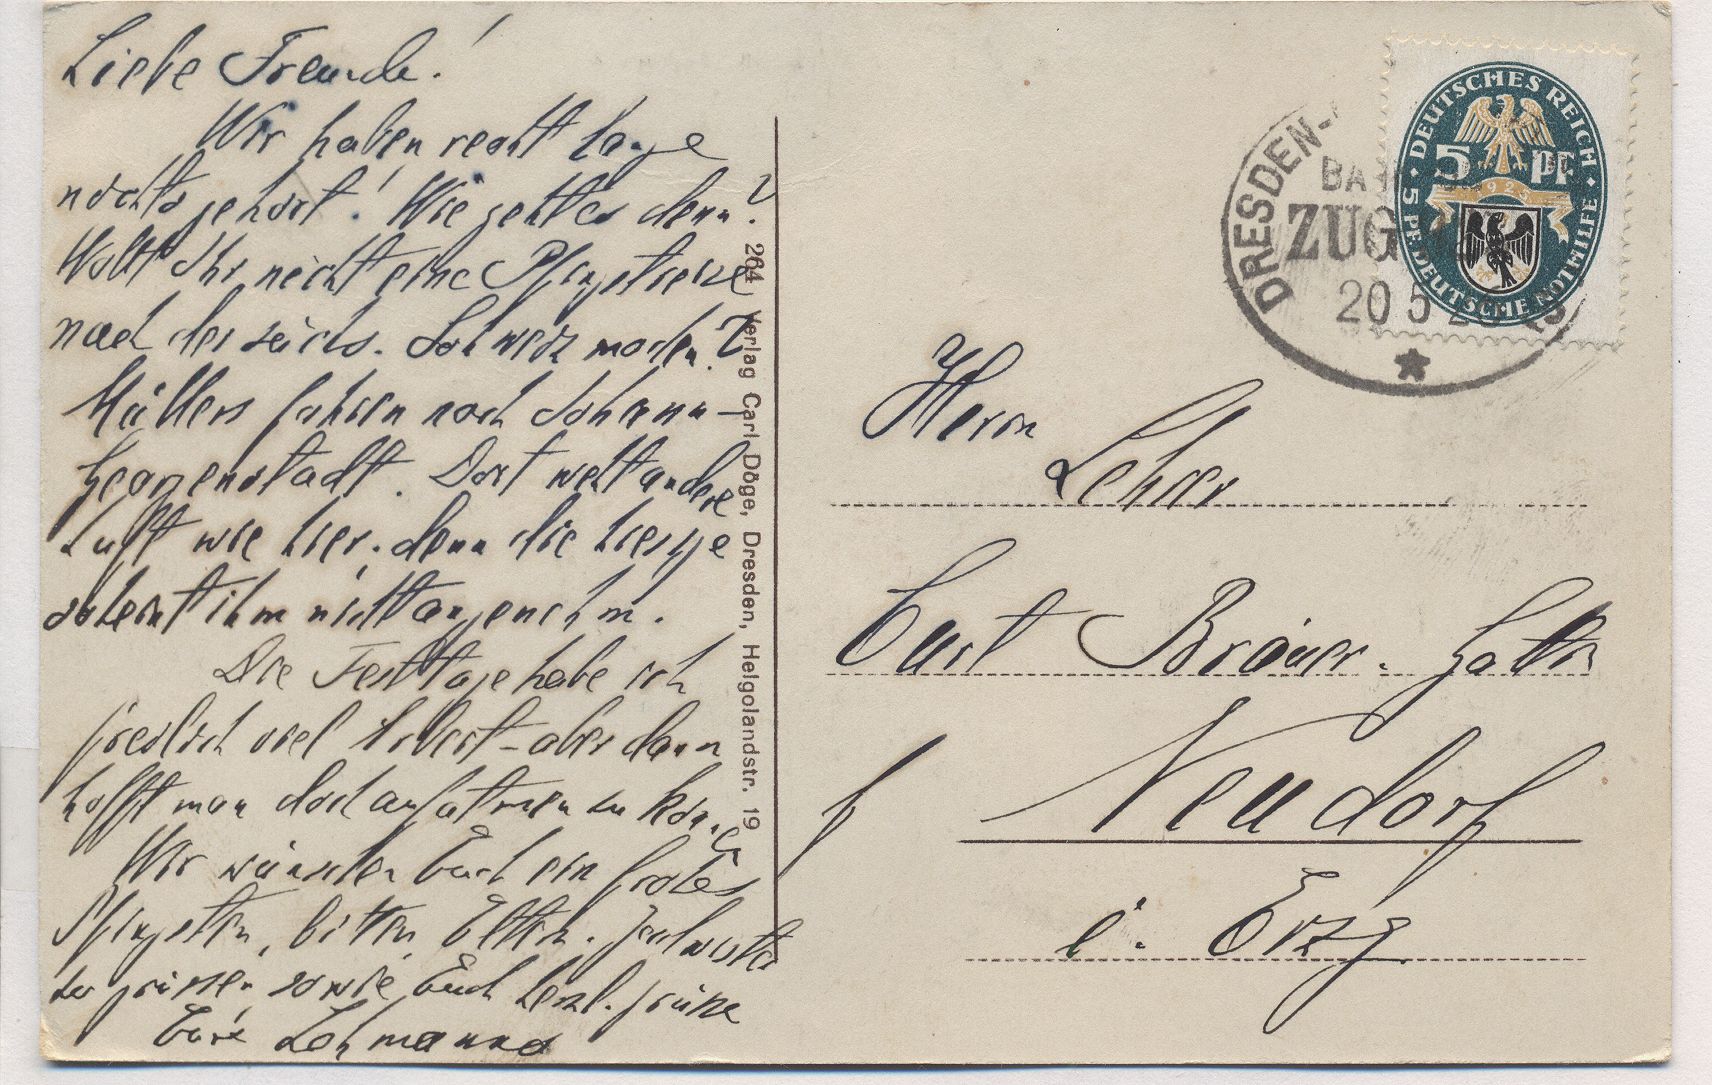 Liebe Freunde!
Wir haben recht lange
nichts gehört! Wie geht es denn?
Wollt Ihr nicht eine Pfingstreise
nach der sächs. Schweiz machen?
Müllers fahren nach Johann-
georgenstadt. Dort weht andere
Luft wie hier, denn die hiesige
scheint ihm nicht angenehm.
Die Festtage habe ich
freilich viel Arbeit - aber dann
hofft man doch aufatmen zu können
Wir wünschen Euch ein frohes
Pfingsten, bitten Eltern.
zu grüssen sowie Euch herzl. grüsse
Eure Lehmanns
264 Verlag Carl Döge, Dresden, Helgolandstr. 19
DEUTSCHES REICH
5 Pf
192
5 PF. DEUTSCHE NOTHILFE
DRESDEN-
ZUG
20 5
Herrn
Lehrer
Curt Bräuer.
Neudorf
i. Erzg